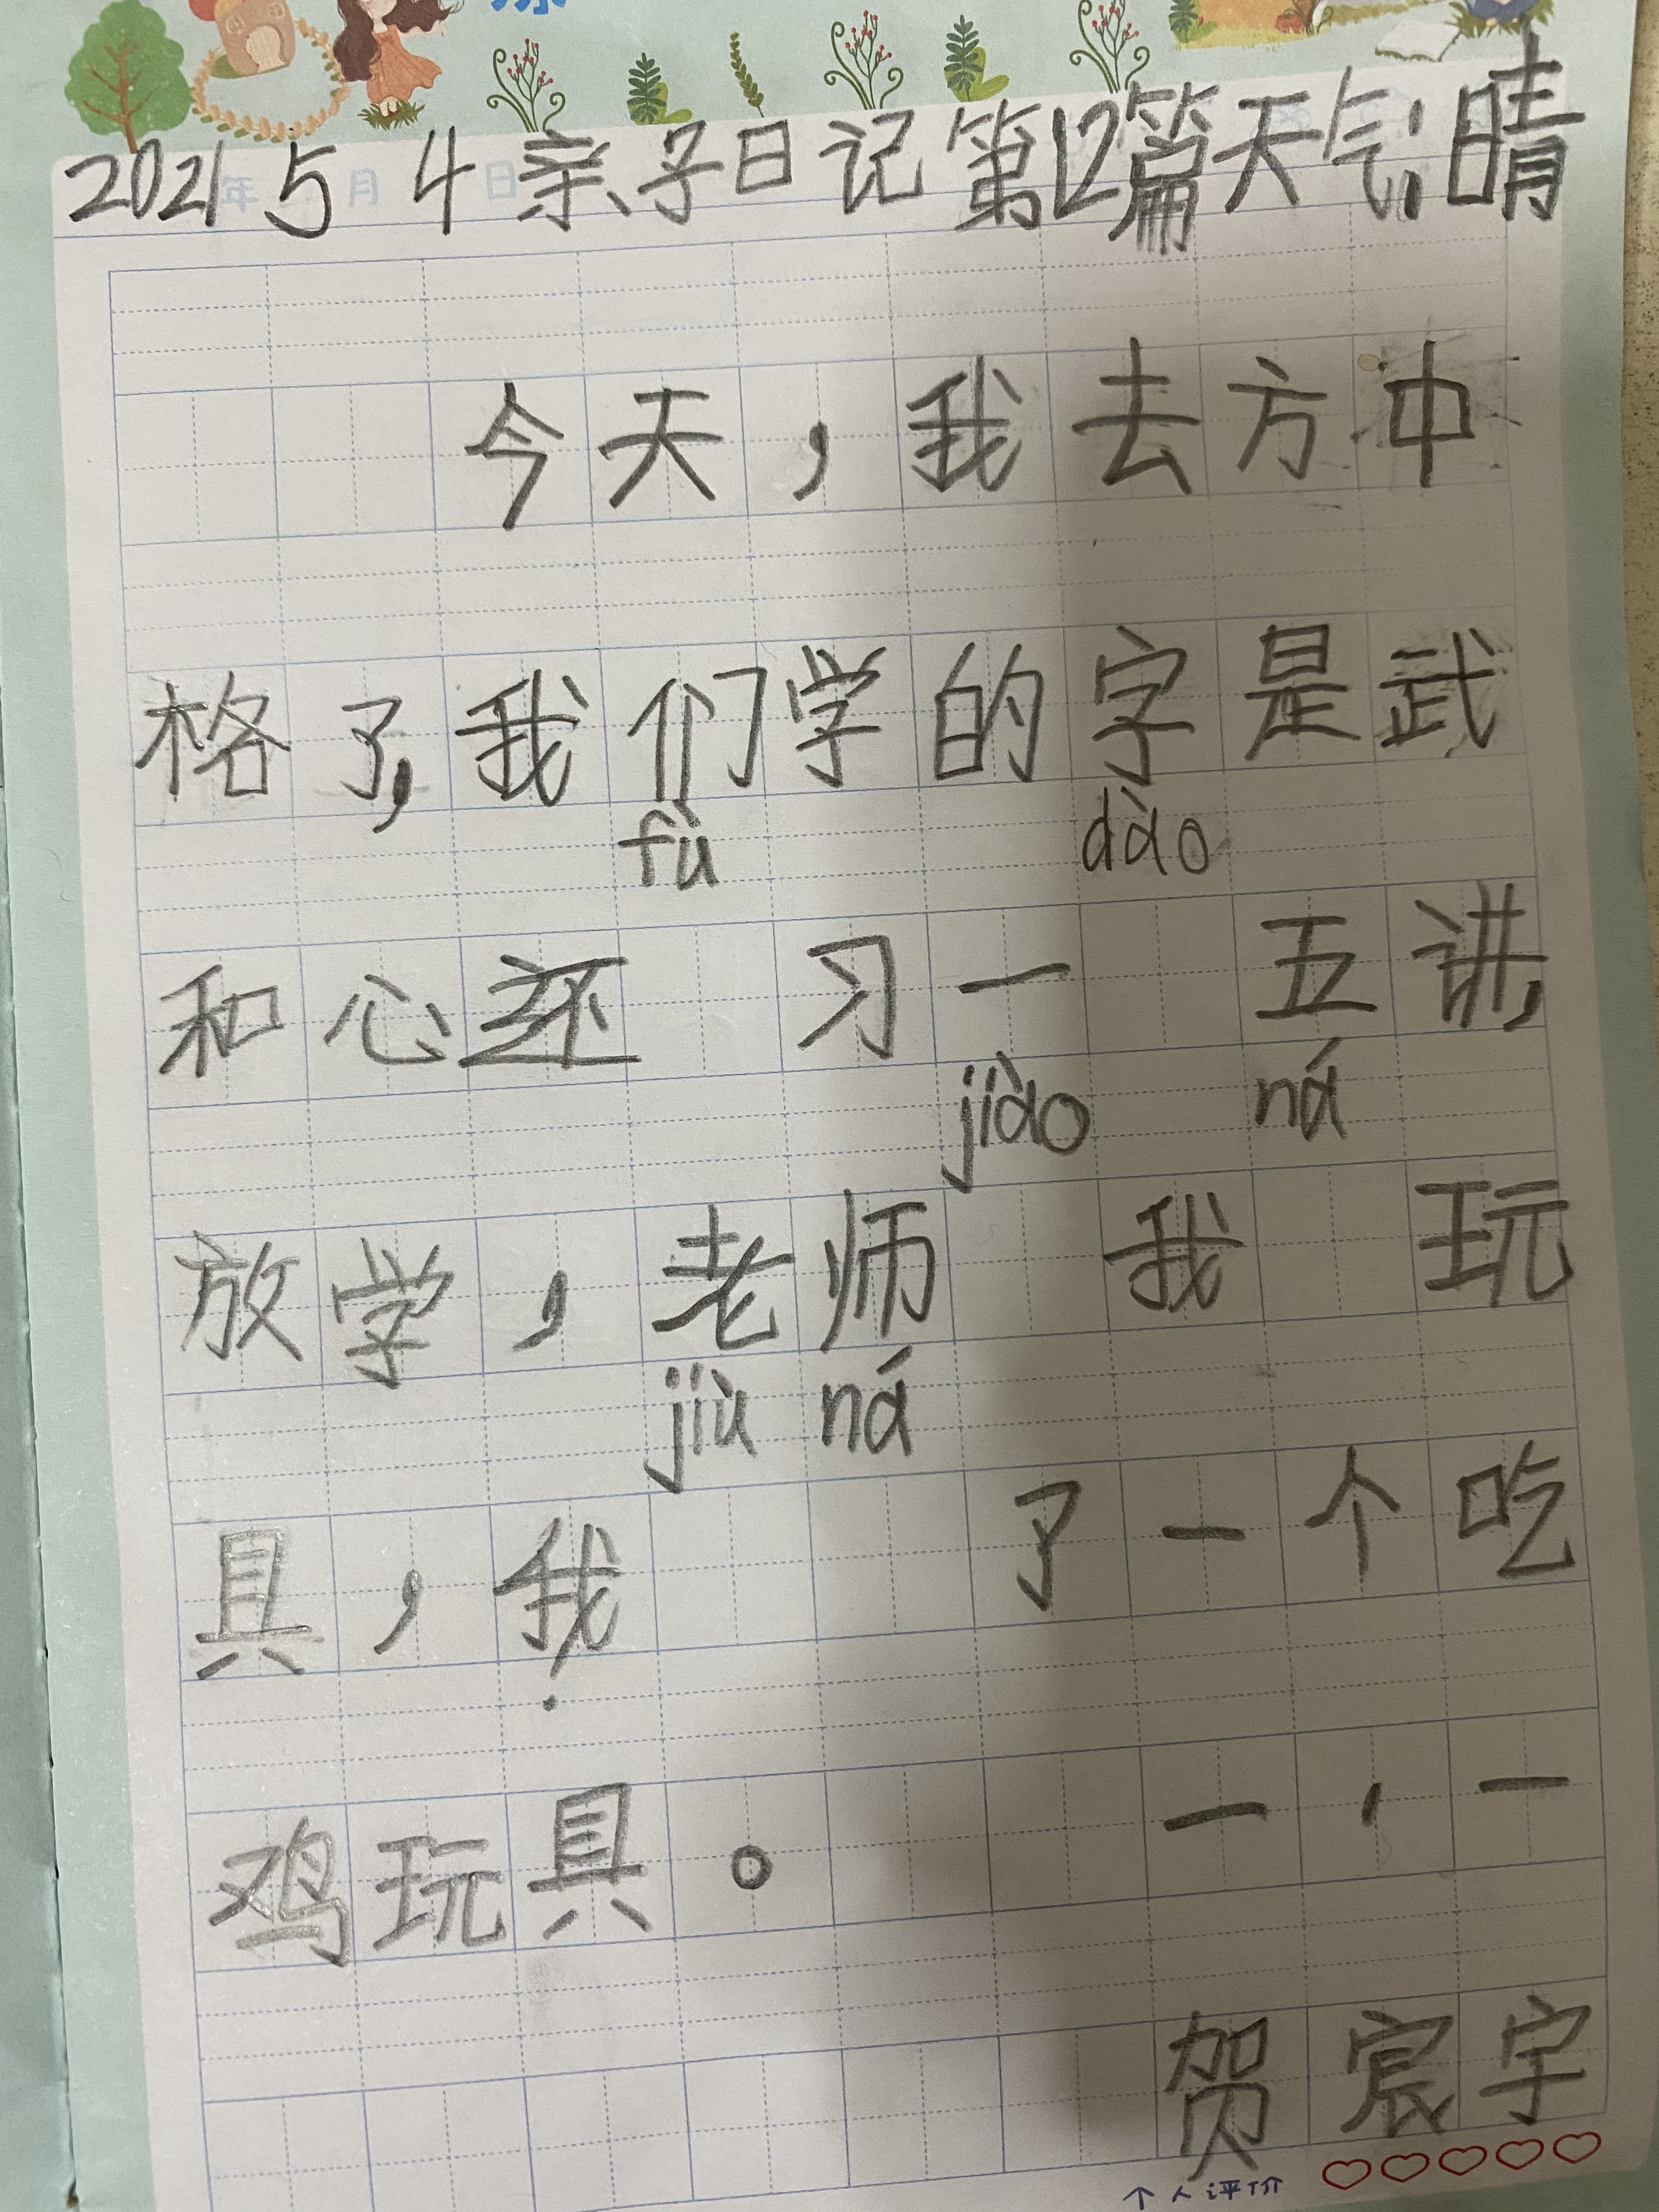 2021年5月4日亲子日记第12篇天气:晴
今天,我去方中
格了,我们学的字是武
fù dào
和心还 习一 五讲,
jiào ná
放学,老师 我 玩
jiù ná
具,我 了一个吃
鸡玩具。 一,一
贺宸宇
个人评价